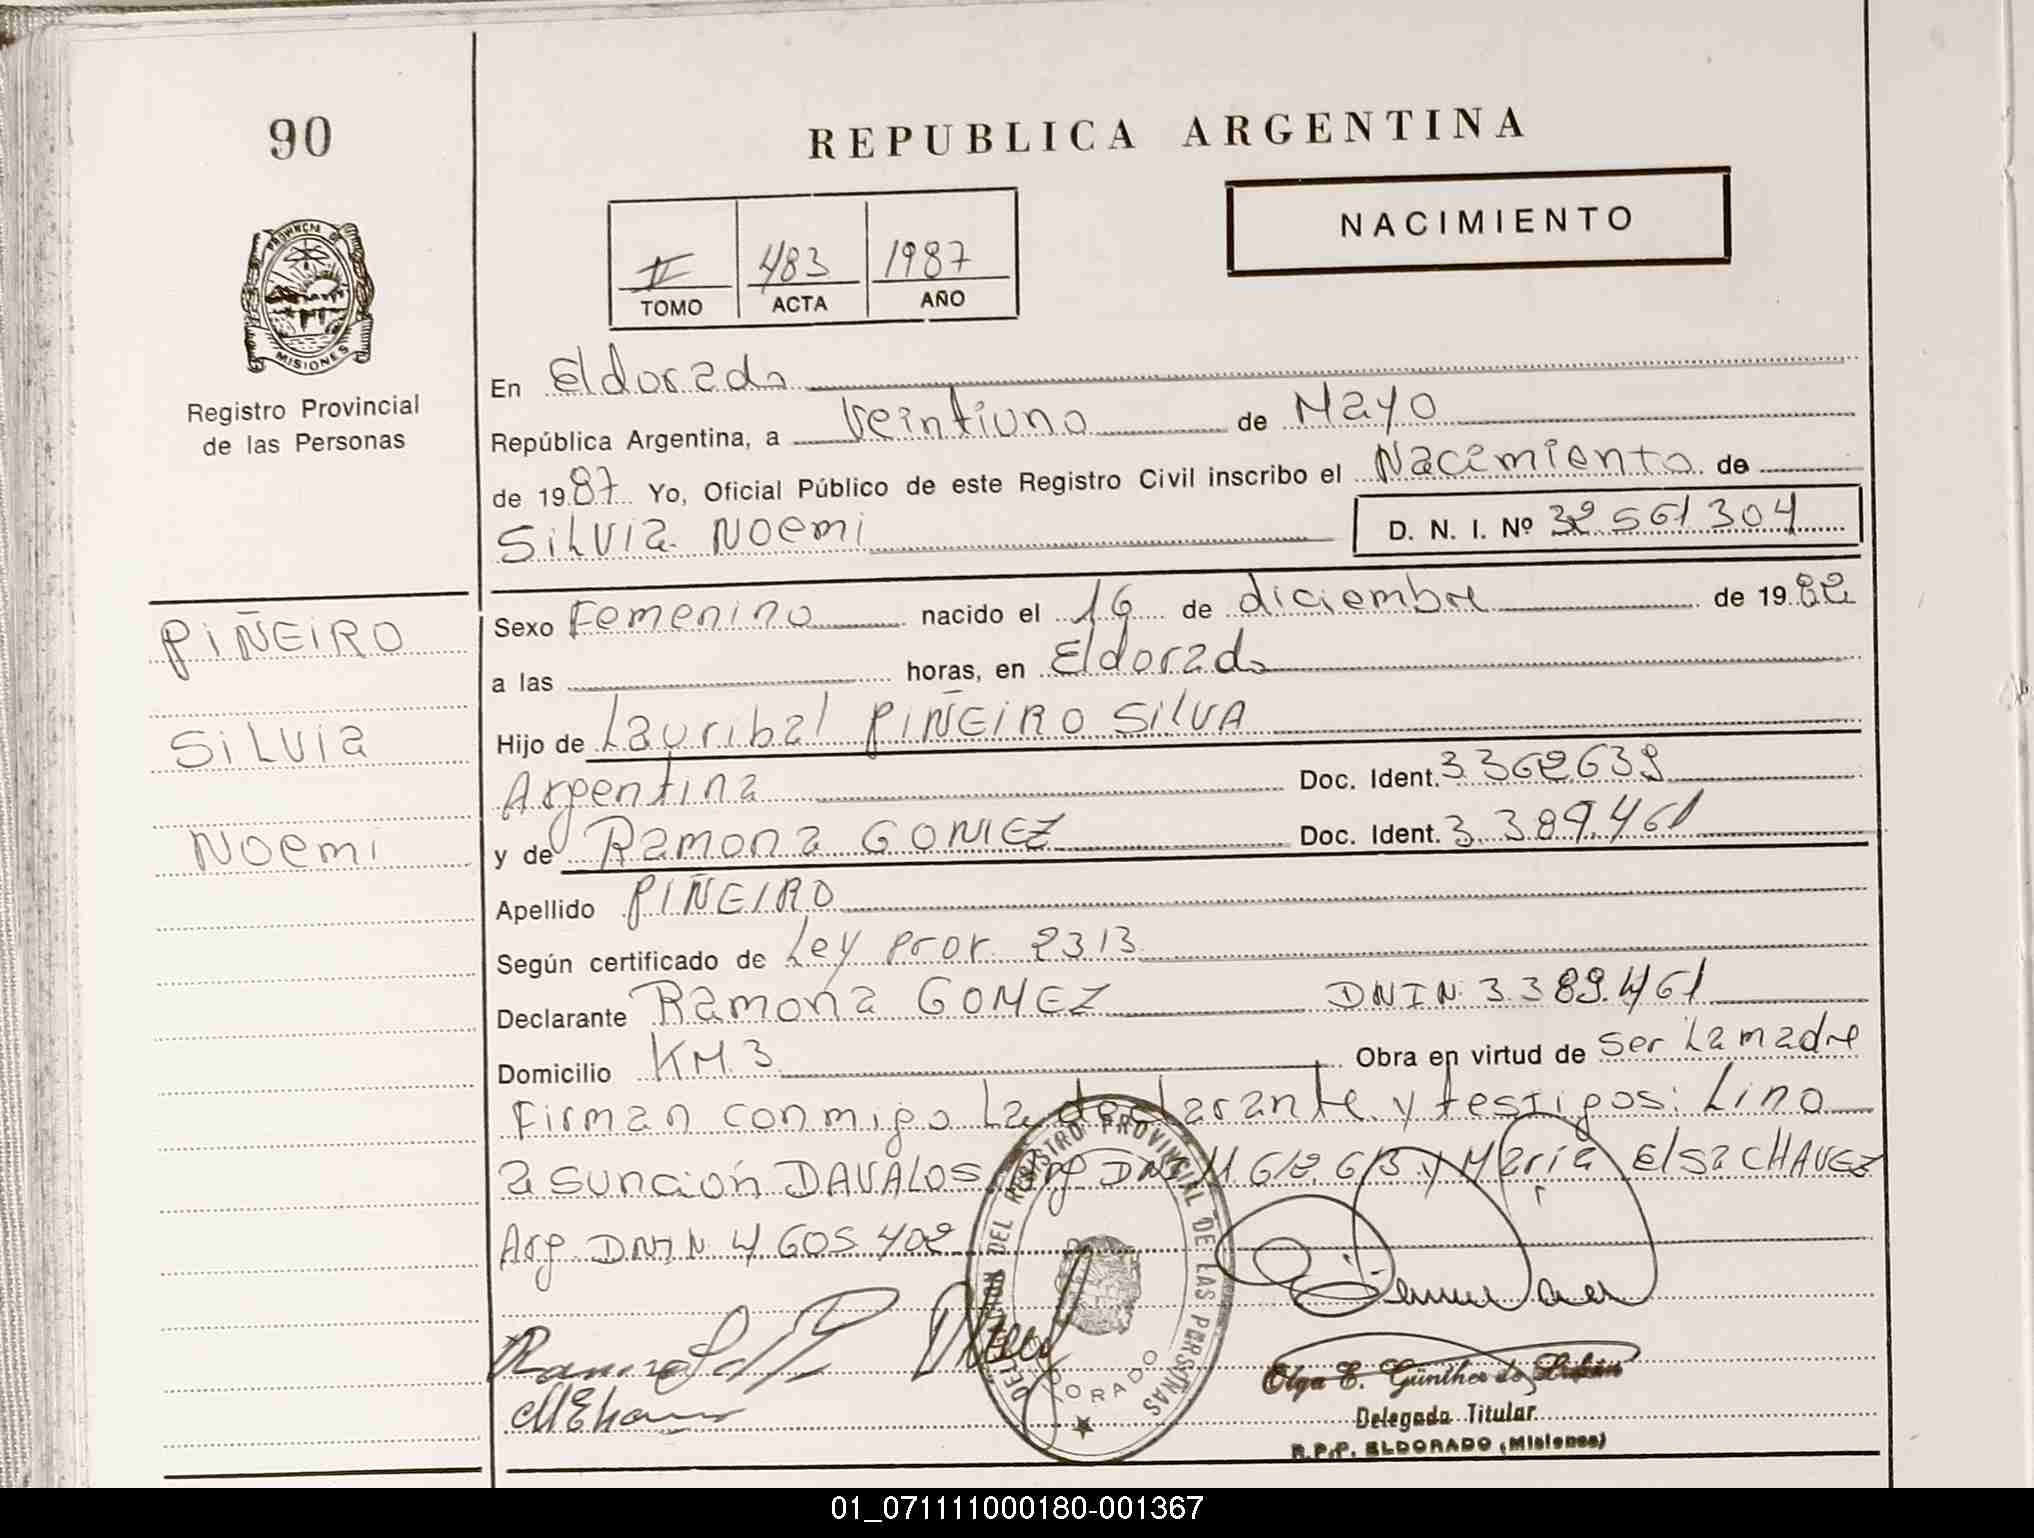 90
REPUBLICA ARGENTINA
PROVINCIA DE
MISIONES
Registro Provincial
de las Personas
II 483 1987
TOMO ACTA AÑO
NACIMIENTO
En Eldorado
República Argentina, a Veintiuno de Mayo
de 1987 Yo, Oficial Público de este Registro Civil inscribo el Nacimiento de
Silvia Noemi D. N. I. Nº 32 561 304
PIÑEIRO
Silvia
Noemi
Sexo Femenino nacido el 16 de diciembre de 1982
a las horas, en Eldorado
Hijo de Lauribal PIÑEIRO SILVA
Argentina Doc. Ident. 3362639
y de Ramona GOMEZ Doc. Ident. 3.389.461
Apellido PIÑEIRO
Según certificado de Ley prov. 2313
Declarante Ramona GOMEZ DNIN. 3.389.461
Domicilio KM. 3 Obra en virtud de Ser La madre
Firman conmigo La declarante y testigos: Lino
asunción DAVALOS Arg DNI 11.612.613 y María Elsa CHAVEZ
Arg. DNIN. 4 605 402
DELEGACION DEL REGISTRO PROVINCIAL DE LAS PERSONAS
ELDORADO
Olga E. Günther de
Delegada Titular
R.P.P. ELDORADO (Misiones)
01_071111000180-001367